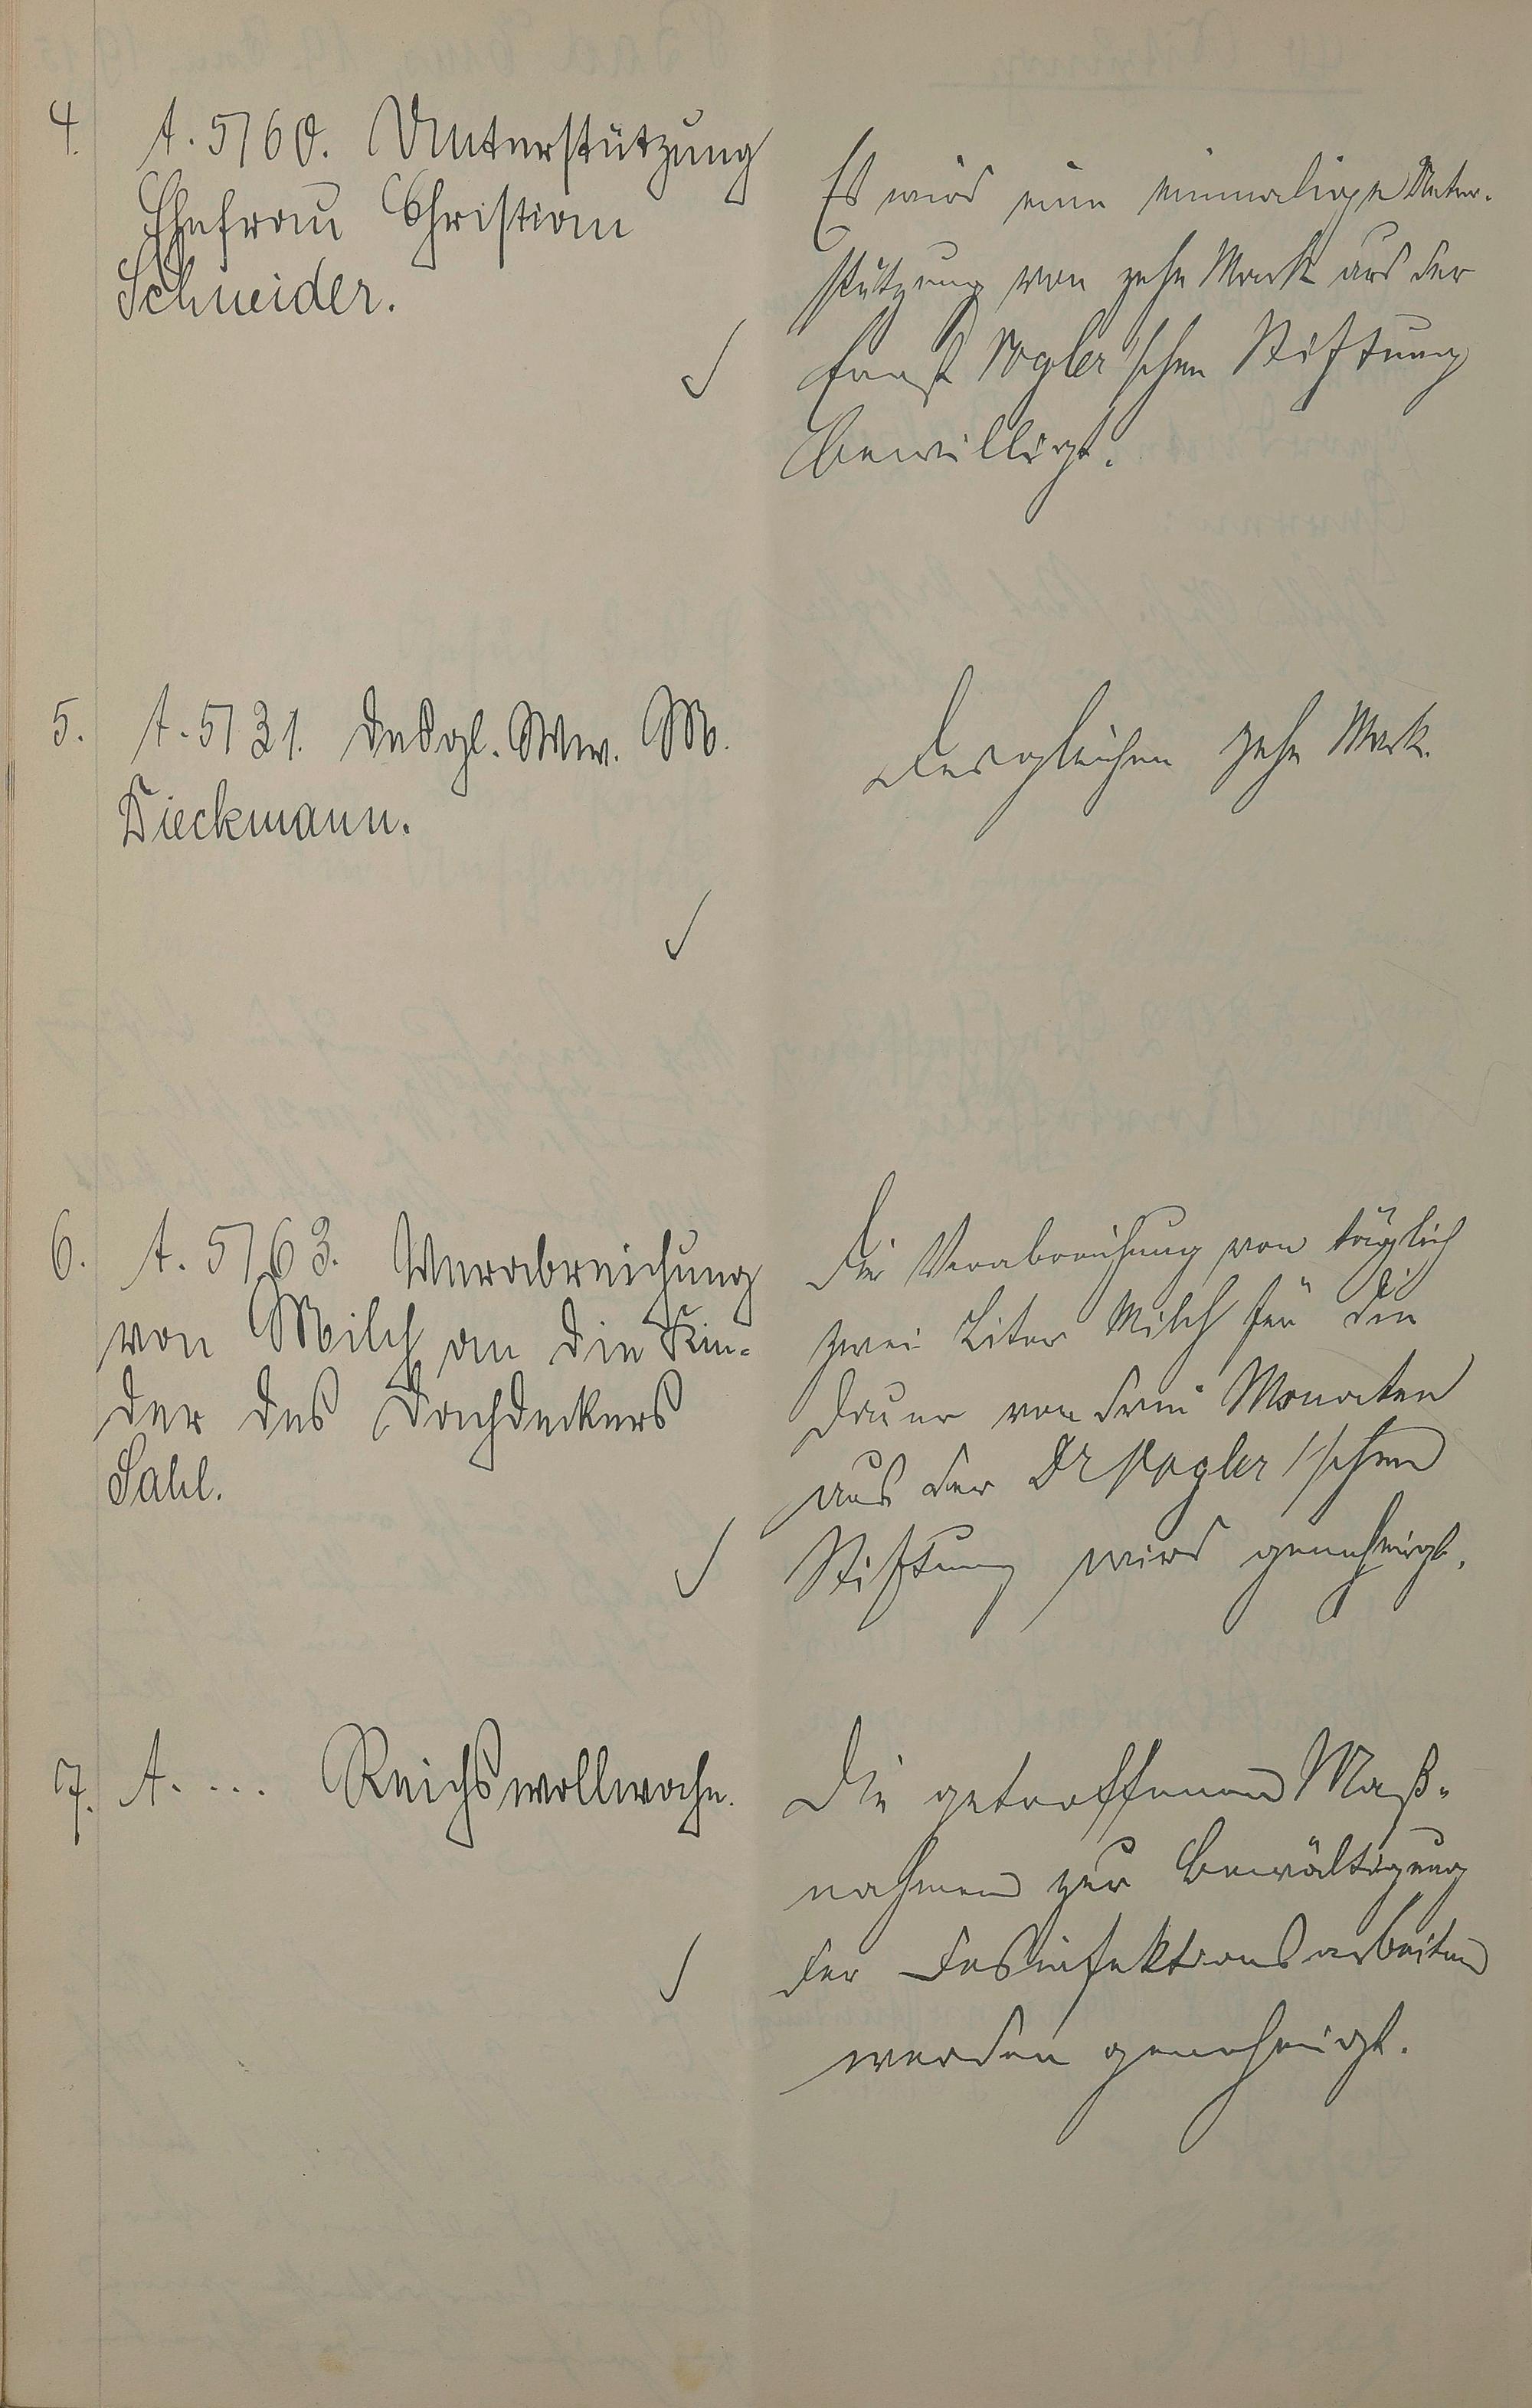 4. A. 5760. Unterstützung
Ehefrau Christian
Schneider.
Es wird eine einmalige Unter-
stützung von zehn Mark aus der
Ernst Vogler'schen Stiftung
bewilligt.
5. A. 5731. Desgl. Ww. M.
Dieckmann.
Desgleichen zehn Mark.
6. A. 5763. Verabreichung
von Milch an die Kin-
der des Dachdeckers
Sahl.
Die Verabreichung von täglich
zwei Liter Milch für die
Dauer von drei Monaten
aus der Dr Vogler'schen
Stiftung wird genehmigt.
7. A. ... Reichswollwoche.
Die getroffenen Maß-
nahmen zur Bewältigung
der Desinfektionsarbeiten
werden genehmigt.